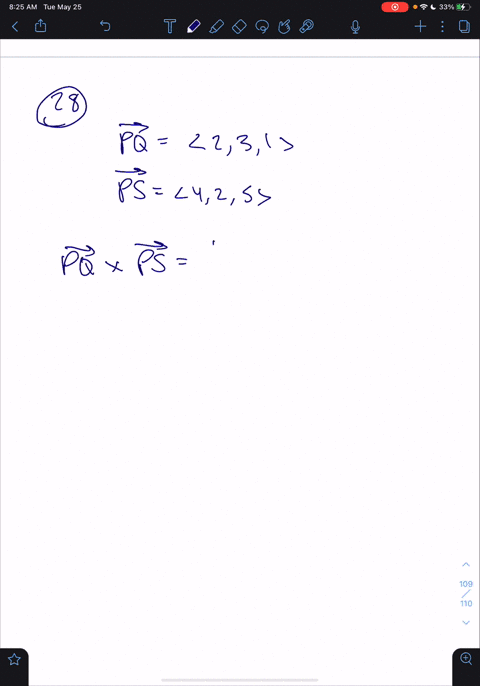 8:25 AM Tue May 25
33%
28
PQ = <2, 3, 1>
PS = <4, 2, 5>
PQ × PS =
109
/
110